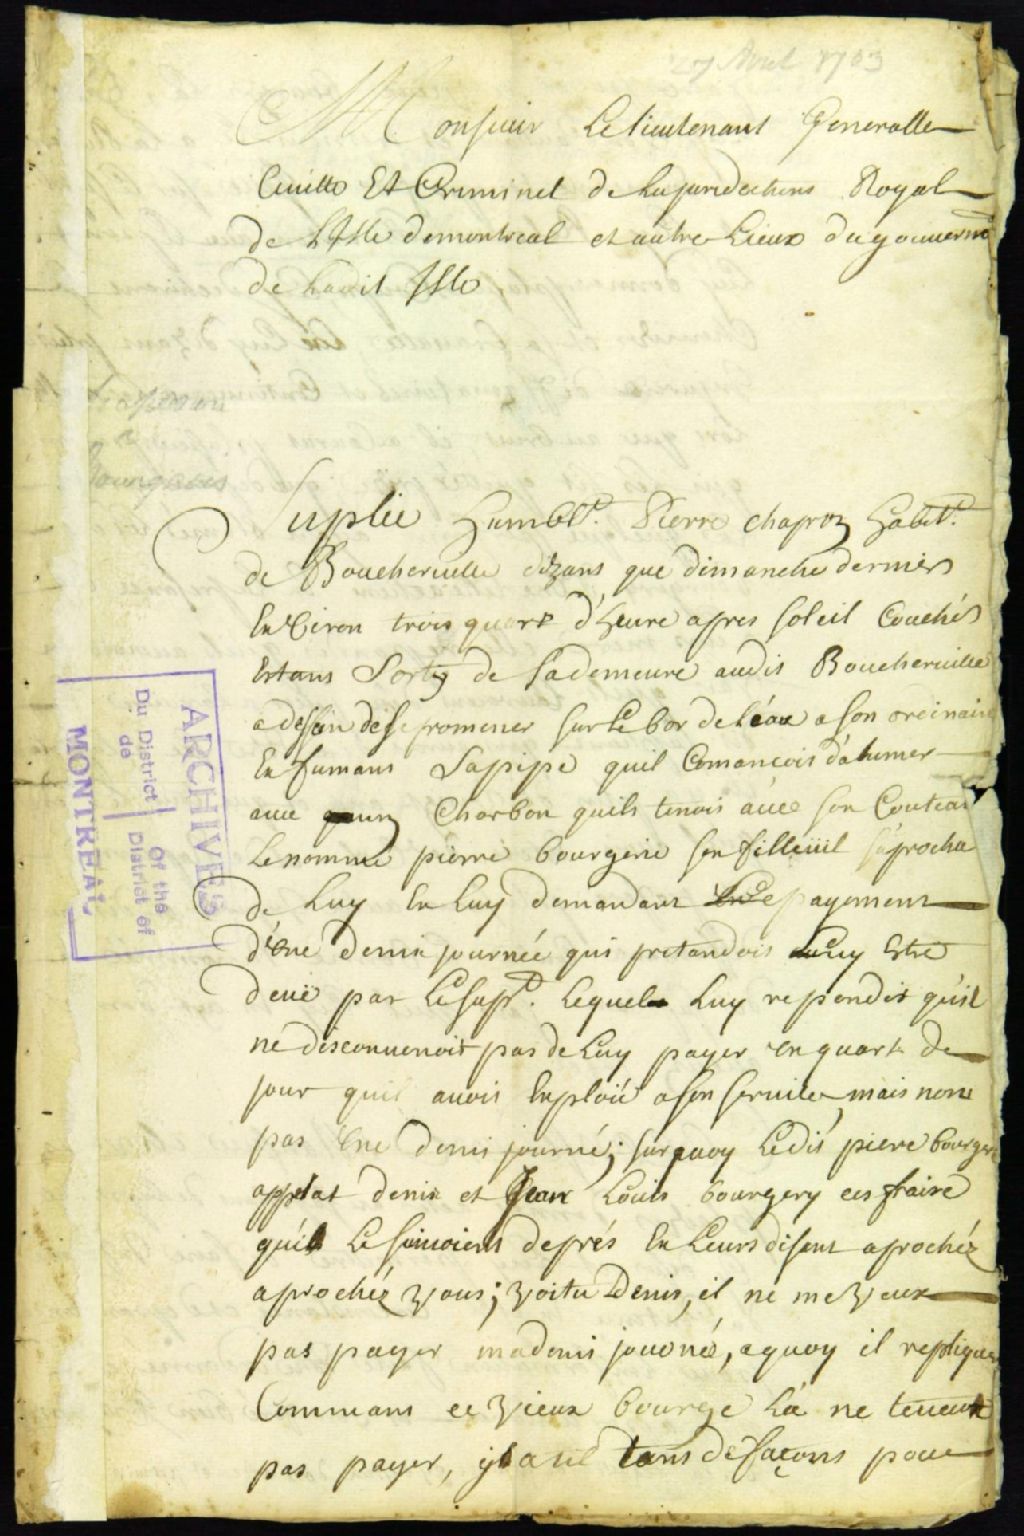 27 Avril 1703
Monsieur Le lieutenant Generalle
Ciuille Et Criminel de La juridections Royal
de L'Isle demontreal et autre Lieux du gouuerne
de Ladit Isle
Bourgeries
Suplie humblt. Pierre chapron habitt.
de Boucheruille dizans que dimanche dernier
En Viron trois quart d'heure apres soleil Couché
Estans Sorty de Sademeure audis Boucheruille
a desain de se promener sur Le bor de l'éau a son orcinaire
En fumans Sapipe quil Comancois d'alumer
auec un Charbon quils tenois auec son Couteau
Le nommé piérre bourgerie son filleüil s'aprocha
de Luy En Luy demandant Le payement
d'Vne demie journée qui pretandois Luy Estre
deuë par Le Supt. Lequel Luy repondit qu'il
ne disconuenoit pas de Luy payer Vn quart de
jour quil auois Emploié a son seruice, mais non
pas Vne demi journé; sur quoy Ledis piere bourgery
applat denis et Jean Louis bourgery ces fraire
qu'il Le suiuoient de prés En Leurs disent aprochéz
aprochéz Vous; Voitu Denis, il ne me Veux
pas payer ma demi journéé, a quoy il repliqua
Commans ce Vieux bourge Là ne te ueut
pas payer, y a til tans de façons pour
ARCHIVES
Du District
de
Of the
District of
MONTREAL